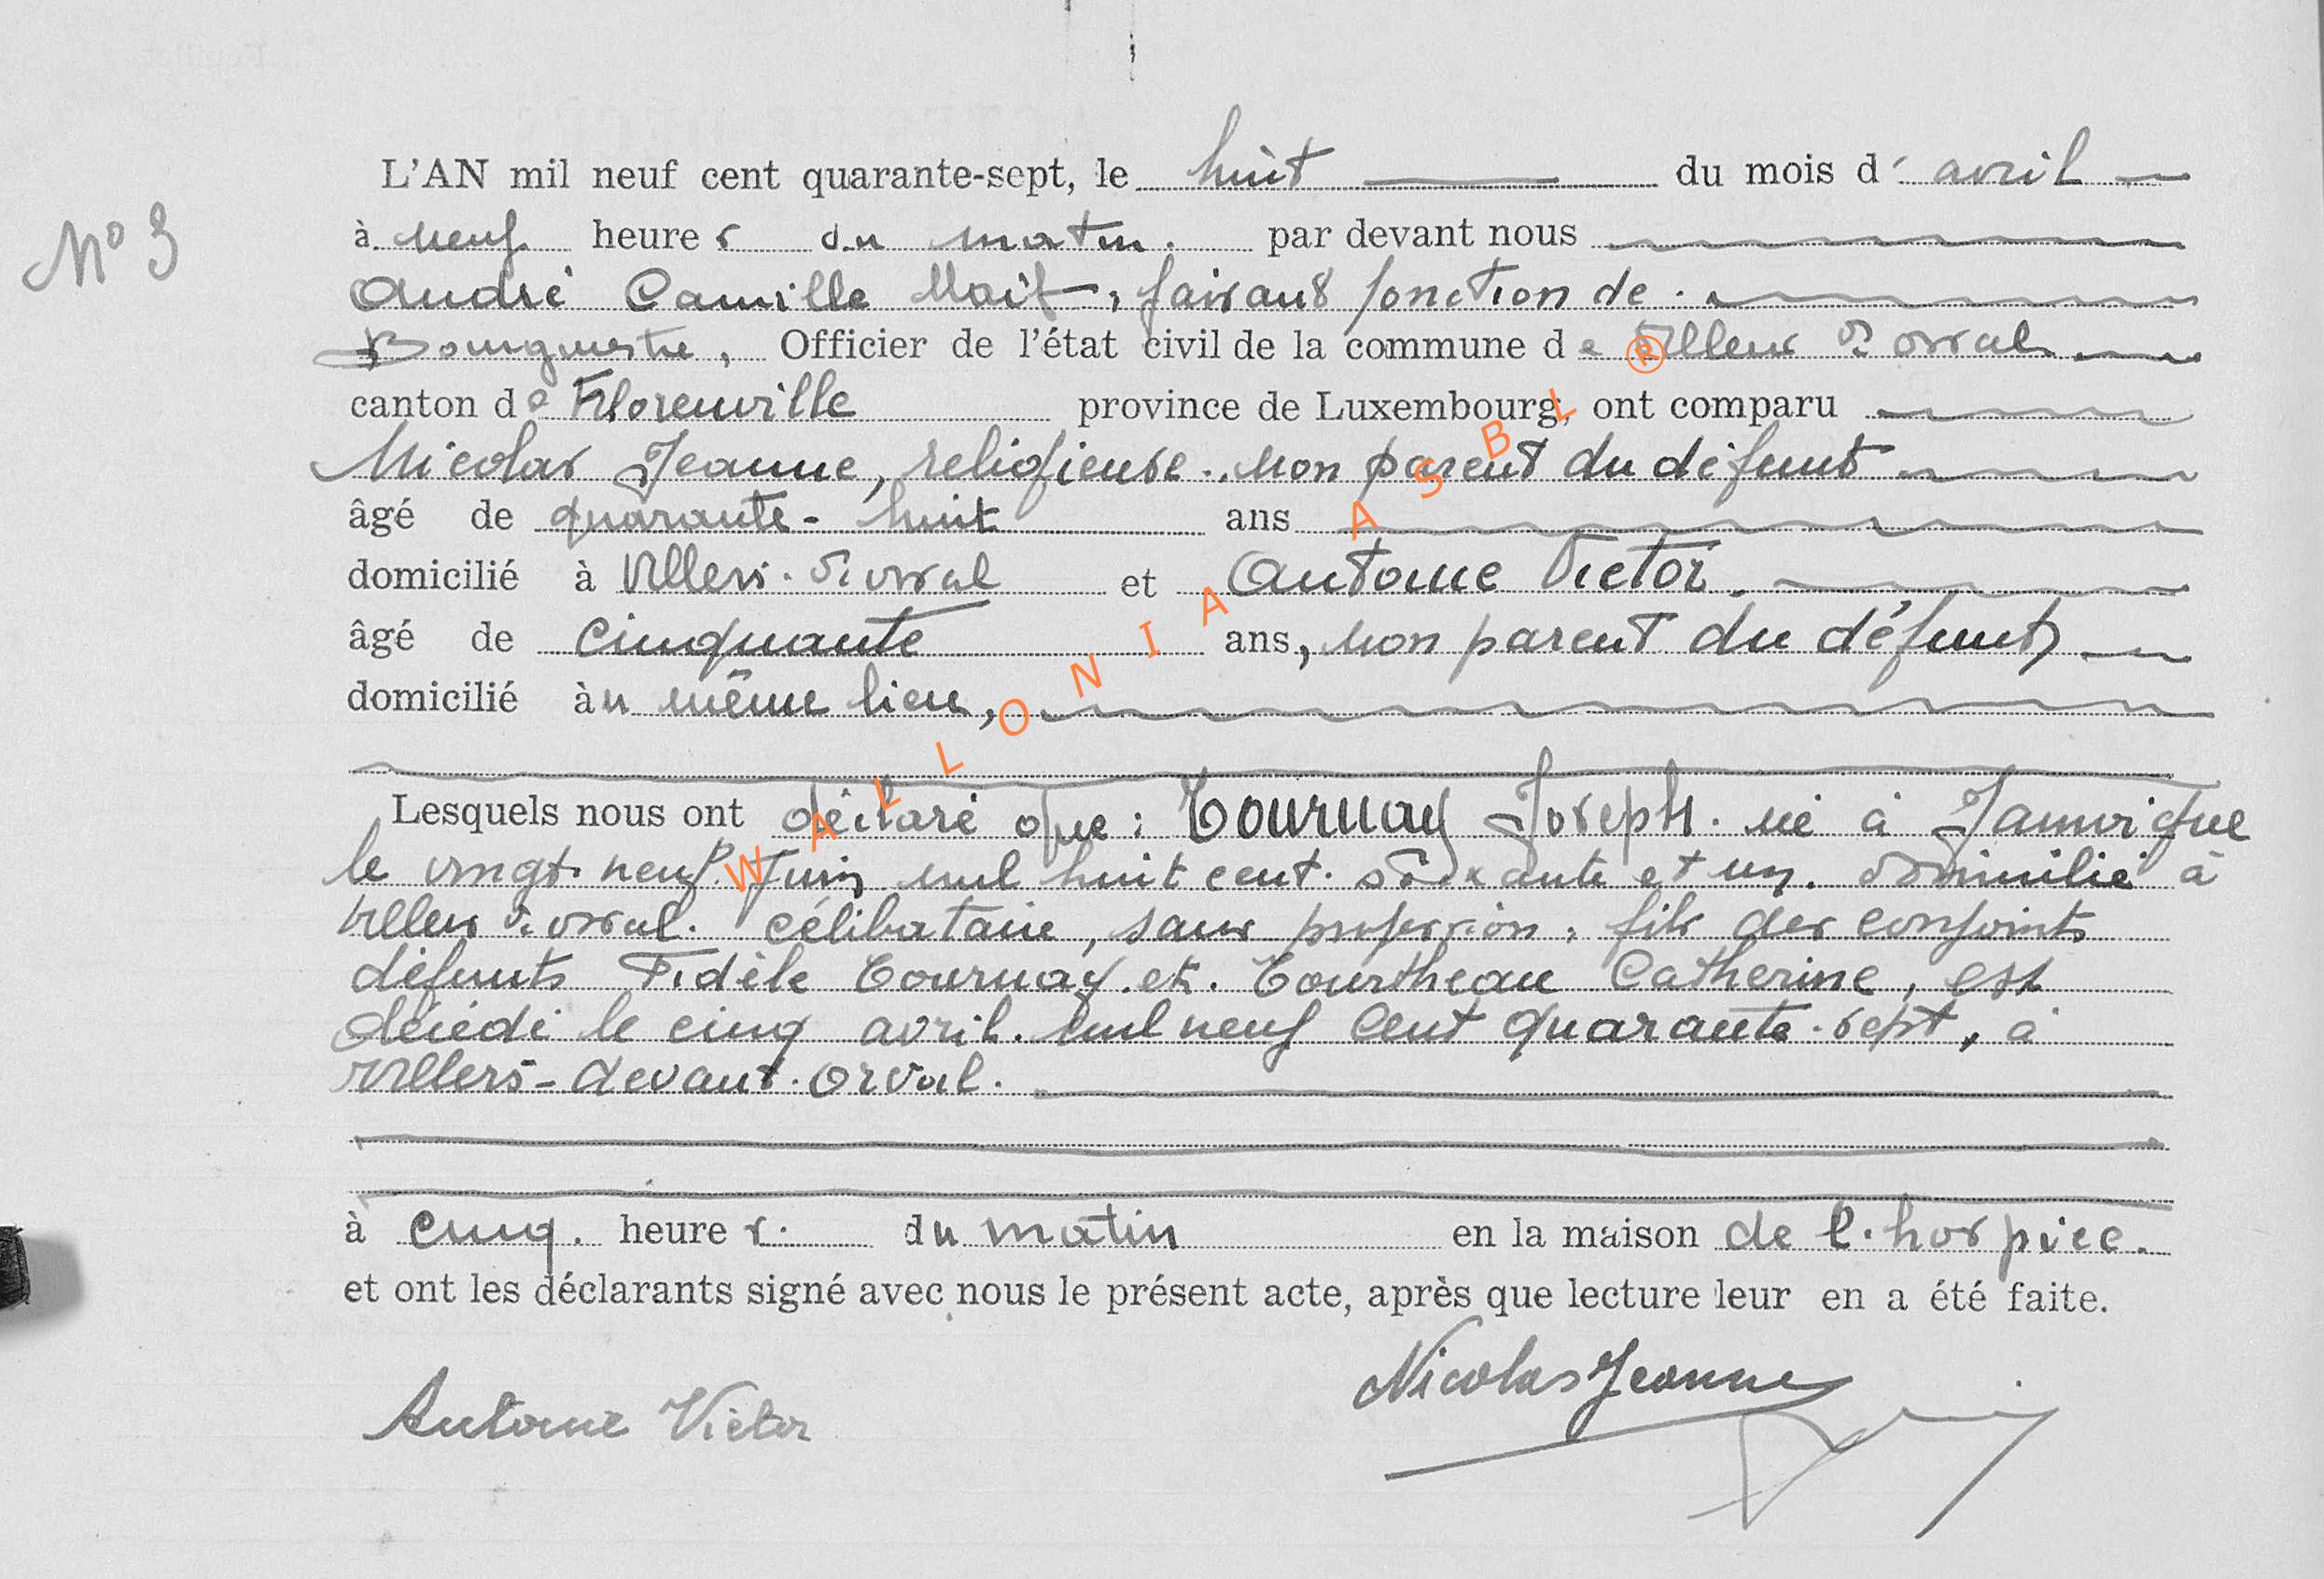 L'AN mil neuf cent quarante-sept, le huit du mois d' avril
Nº 3
à neuf heures du matin. par devant nous
André Camille , faisant fonction de
Bourgmestre, Officier de l'état civil de la commune de Villers dt orval
canton de Florenville province de Luxembourg, ont comparu
Nicolas Jeanne, religieuse. non parent du défunt
âgé de quarante-huit ans
domicilié à Villers. dt orval et Antoine Victor.
âgé de cinquante ans, non parent du défunt,
domicilié àu même lieu,
Lesquels nous ont déclaré que : Tournay Joseph. né à Jamoigne
le vingt neuf Juin mil huit cent. soixante et un. domicilié à
Villers dt orval. célibataire, sans profession, fils des conjoints
défunts Fidèle Tournay et. Tourtheau Catherine, est
décédé le cinq avril. mil neuf cent quarante-sept, à
Villers-devant-Orval.
à cinq. heures. du matin en la maison de l'hospice.
et ont les déclarants signé avec nous le présent acte, après que lecture leur en a été faite.
Nicolas Jeanne
Antoine Victor
WALLONIA ASBL ®